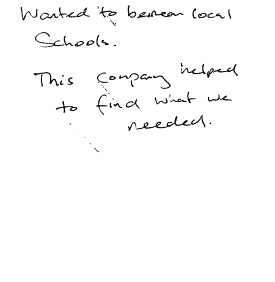 Wanted to between local
Schools.
This company helped
to find what we
needed.